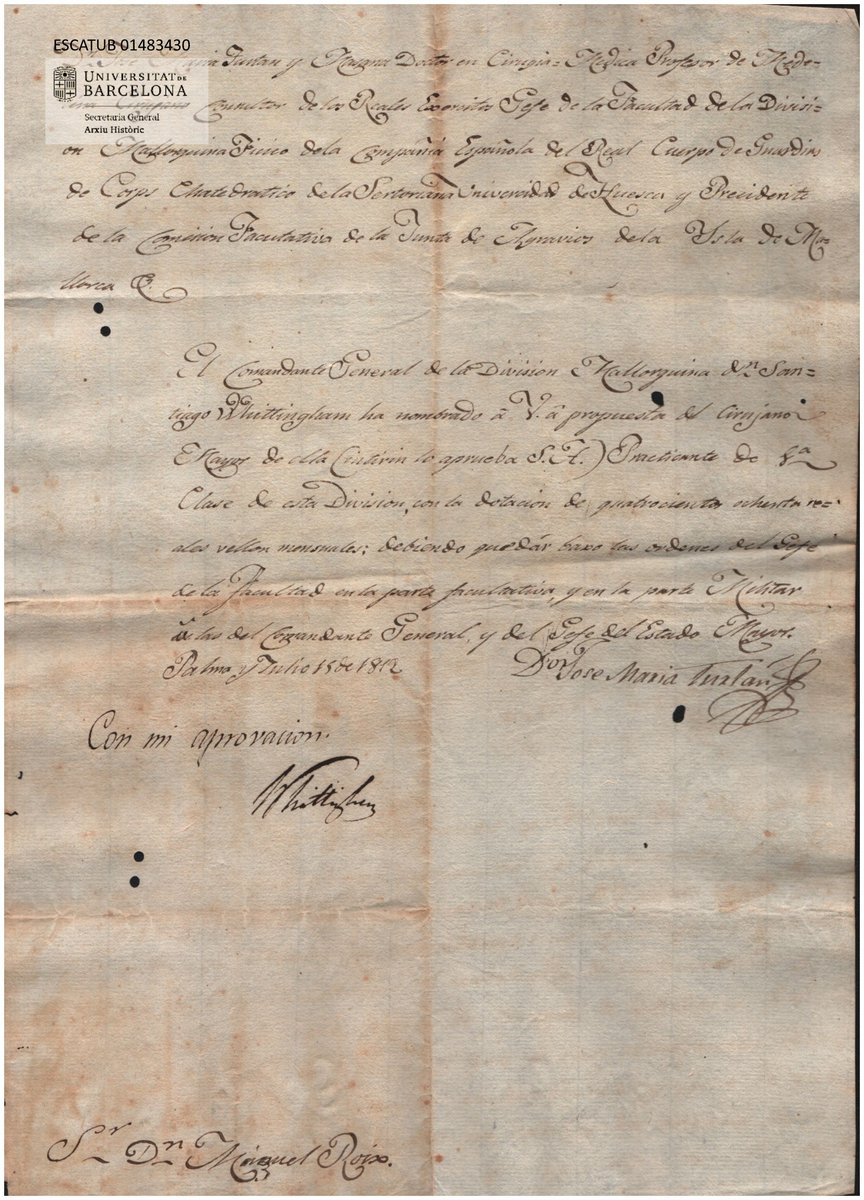 ESCATUB 01483430
UNIVERSITAT DE
BARCELONA
Secretaria General
Arxiu Històric
Maria Turlan y Doctor en Cirugia-Medica Profesor de Mede=
Cirujano Consultor de los Reales Exercitos Gefe de la Facultad de la Divisi=
on Mallorquina Ficico de la Compañia Española del Real Cuerpo de Guardias
de Corps Chatedratico de la Sertoriana Univercidad de Huesca y Precidente
de la Comicion Facultativa de la Junta de Agravios de la Ysla de Ma=
llorca &.
El Comandante General de la Division Mallorquina dn. San=
tiago Whittingham ha nombrado á V. á propuesta del Cirujano
Mayor de ella (interin lo aprueba S. A.) Practicante de
Clase de esta Division, con la dotacion de quatrocientos ochenta re=
ales vellon mensuales; debiendo quedár baxo las ordenes del Gefe
de la Facultad en la parte facultativa, y en la parte Militar
las del Comandante General, y del Gefe del Estado Mayor.
Palma y Julio 15 de 1812
Dor. Jose Maria Turlan
Con mi aprovacion.
Whittingham
Sr. Dn. Miguel Roix.